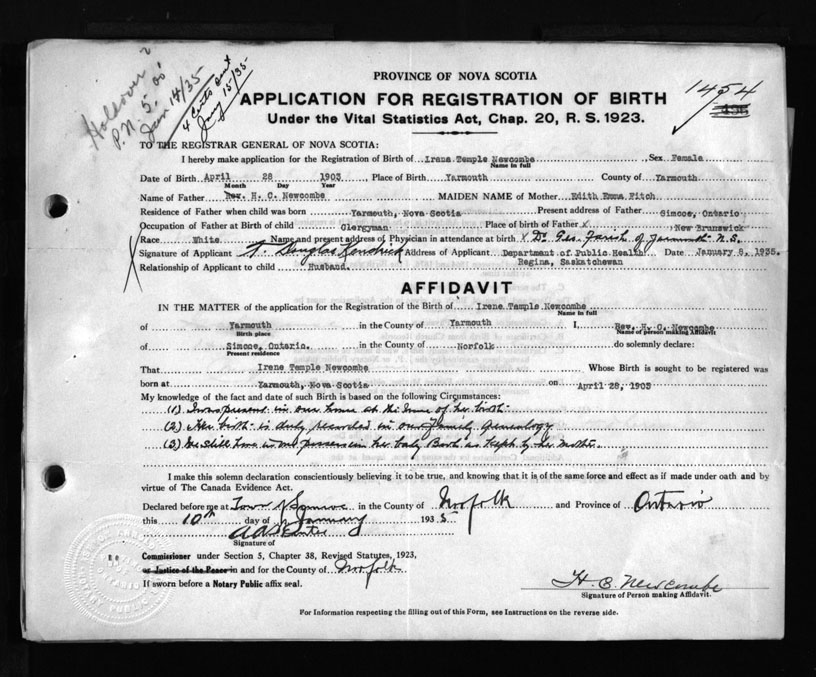 Holdover
P.N. 5.00
Jan 14/35
4 Cents sent
Jany 15/35
PROVINCE OF NOVA SCOTIA
1454
APPLICATION FOR REGISTRATION OF BIRTH
Under the Vital Statistics Act, Chap. 20, R. S. 1923.
TO THE REGISTRAR GENERAL OF NOVA SCOTIA:
I hereby make application for the Registration of Birth of Irene Temple Newcombe Sex Female
Name in full
Date of Birth April 28 1903 Place of Birth Yarmouth County of Yarmouth
Month Day Year
Name of Father Rev. H. C. Newcombe MAIDEN NAME of Mother Edith Emma Fitch
Residence of Father when child was born Yarmouth, Nova Scotia Present address of Father Simcoe, Ontario
Occupation of Father at Birth of child Clergyman Place of birth of Father X New Brunswick
Race White Name and present address of Physician in attendance at birth X Dr. Geo. Farish of Yarmouth N.S.
Signature of Applicant T. Douglas Kendrick Address of Applicant Department of Public Health Date January 8, 1935.
Relationship of Applicant to child Husband. Regina, Saskatchewan
AFFIDAVIT
IN THE MATTER of the application for the Registration of the Birth of Irene Temple Newcombe
Name in full
of Yarmouth in the County of Yarmouth I, Rev. H. C. Newcombe
Birth place Name of person making Affidavit
of Simcoe, Ontario. in the County of Norfolk do solemnly declare:
Present residence
That Irene Temple Newcombe Whose Birth is sought to be registered was
born at Yarmouth, Nova Scotia on April 28, 1903
My knowledge of the fact and date of such Birth is based on the following Circumstances:
(1) I was present in our home at the time of her birth
(2) Her birth is duly recorded in our Family Genealogy
(3) We still have in our possession her baby Book as kept by her Mother.
I make this solemn declaration conscientiously believing it to be true, and knowing that it is of the same force and effect as if made under oath and by
virtue of The Canada Evidence Act.
Declared before me at Town of Simcoe in the County of Norfolk and Province of Ontario
this 10th day of January 1935
Signature of
Commissioner under Section 5, Chapter 38, Revised Statutes, 1923,
as Justice of the Peace in and for the County of Norfolk
If sworn before a Notary Public affix seal.
H. C. Newcombe
Signature of Person making Affidavit.
For Information respecting the filling out of this Form, see Instructions on the reverse side.